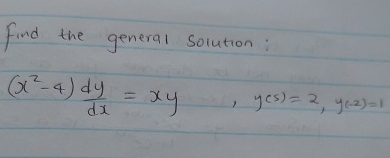 Find the general solution:
(x²-4) dy/dx = xy , y(5) = 2, y(-2)=1